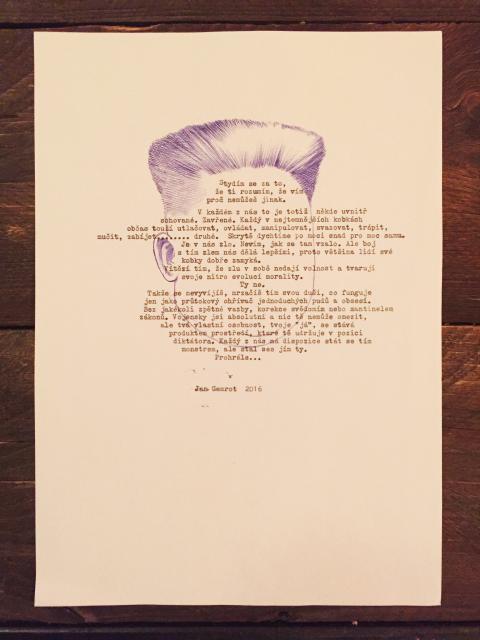 Stydím se za to,
že ti rozumím, že vím
proč nemůžeš jinak.
V každém z nás to je totiž někde uvnitř
schované. Zavřené. Každý v nejtemnějších kobkách
občas touží utlačovat, ovládat, manipulovat, svazovat, trápit,
mučit, zabíjet....... druhé. Skrytě dychtíme po moci snad pro moc samu.
Je v nás zlo. Nevím, jak se tam vzalo. Ale boj
s tím z nás dělá lepšími, proto většina lidí své
kobky dobře zamyká.
Vítězí tím, že zlu v sobě nedají volnost a tvarují
svoje nitro evolucí morality.
Ty ne.
Takže se nevyvíjíš, mrzačíš tím svou duši, co funguje
jen jako průtokový ohřívač jednoduchých pudů a obsesí.
Bez jakékoli zpětné vazby, korekce svědomím nebo mantinelem
zákonů. Vojensky jsi absolutní a nic tě nemůže omezit,
ale tvá vlastní osobnost, tvoje "já", se stává
produktem prostředí, které tě udržuje v pozici
diktátora. Každý z nás má dispozice stát se tím
monstrem, ale stal ses jím ty.
Prohráls...
Jan Gemrot 2016